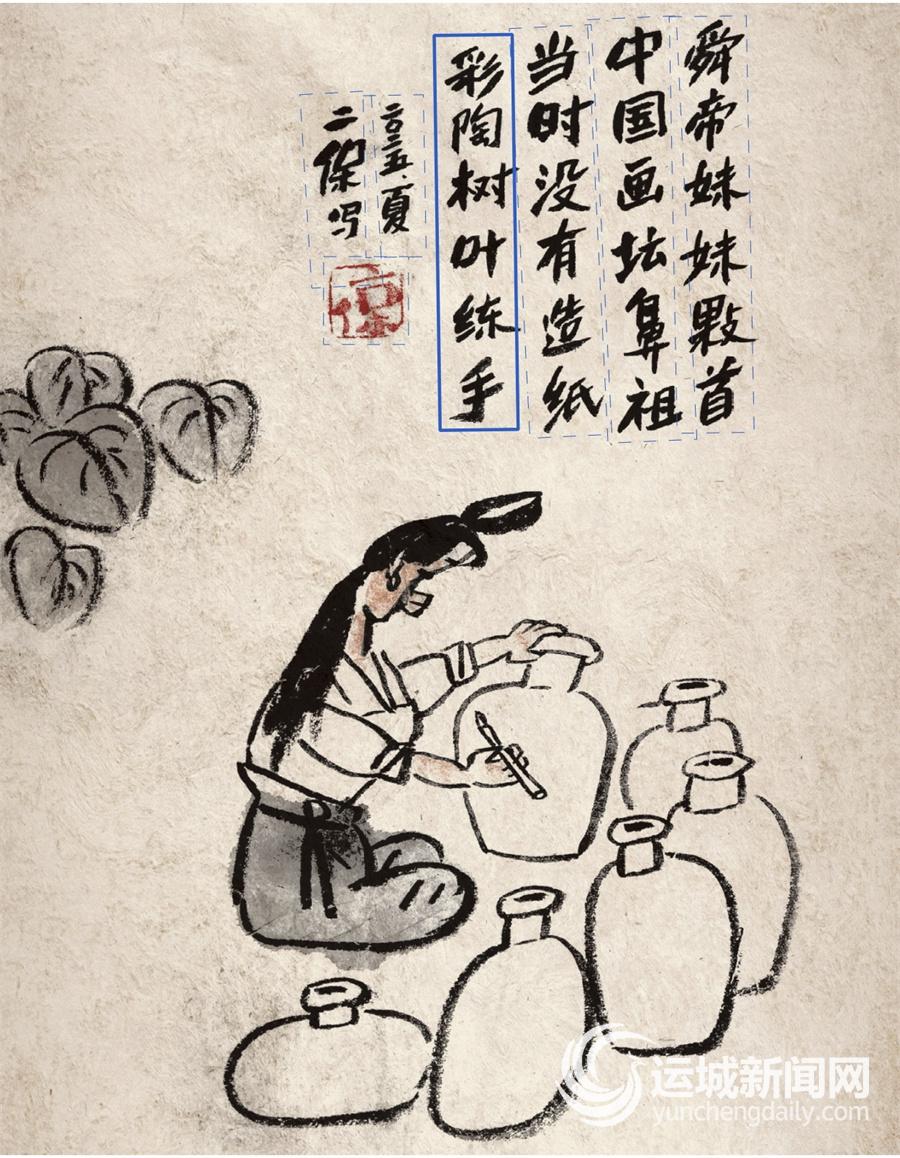 舜帝妹妹敤首
中国画坛鼻祖
当时没有造纸
彩陶树叶练手
二〇二五.夏
二保写
运城新闻网
yunchengdaily.com